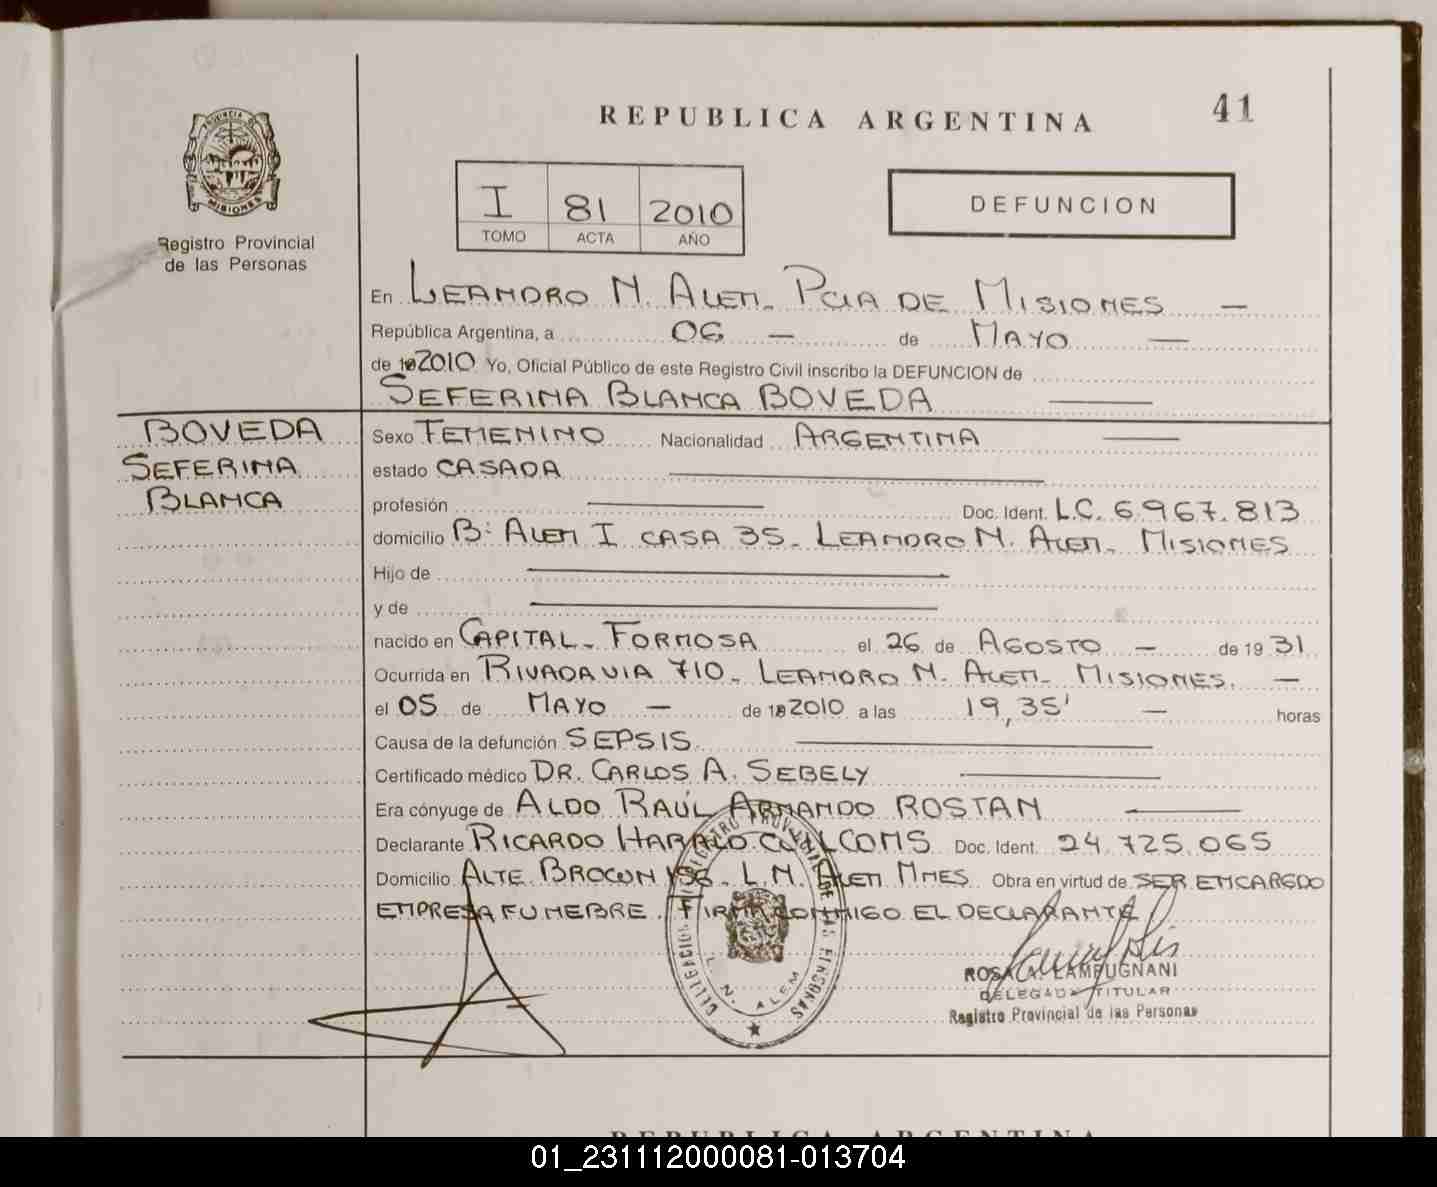 41
REPUBLICA ARGENTINA
PROVINCIA DE
MISIONES
Registro Provincial
de las Personas
I 81 2010
TOMO ACTA AÑO
DEFUNCION
En LEANDRO N. ALEM - PCIA DE MISIONES -
República Argentina, a 06 - de MAYO -
de 2010 Yo, Oficial Público de este Registro Civil inscribo la DEFUNCION de
SEFERINA BLANCA BOVEDA
BOVEDA
SEFERINA
BLANCA
Sexo FEMENINO Nacionalidad ARGENTINA
estado CASADA
profesión Doc. Ident. L.C. 6.967.813
domicilio B: ALEM I CASA 35 - LEANDRO N. ALEM - MISIONES
Hijo de
y de
nacido en CAPITAL - FORMOSA el 26 de AGOSTO - de 19 31
Ocurrida en RIVADAVIA 710 - LEANDRO N. ALEM - MISIONES. -
el 05 de MAYO - de 2010 a las 19,35' - horas
Causa de la defunción SEPSIS.
Certificado médico DR. CARLOS A. SEBELY
Era cónyuge de ALDO RAÚL ARMANDO ROSTAN
Declarante RICARDO HARALD Doc. Ident. 24.725.065
Domicilio ALTE BROWN - L.N. ALEM MNES Obra en virtud de SER ENCARGDO
EMPRESA FUNEBRE. FIRMA CONMIGO EL DECLARANTE
DELEGACION REGISTRO PROVINCIAL DE LAS PERSONAS
L. N. ALEM
ROSA A. LAMPUGNANI
DELEGADA TITULAR
Registro Provincial de las Personas
REPUBLICA ARGENTINA
01_231112000081-013704